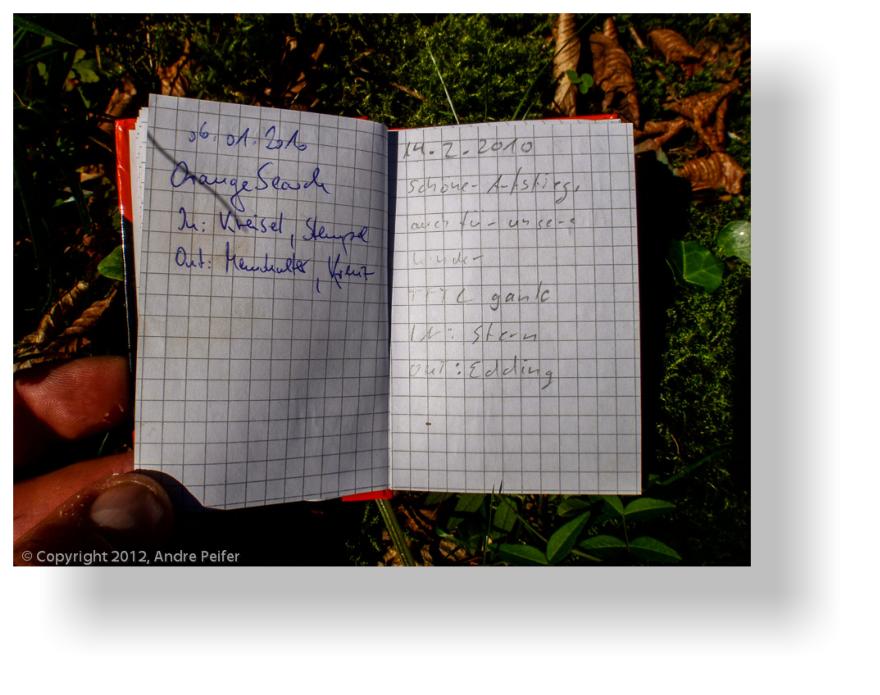 06.01.2010
OrangeSearch
In: Kreisel, Stempel
Out:
14.2.2010
Schöner Aufstieg,
auch für unsere
Kinder
TFTC
IN: Stern
OUT: Edding
© Copyright 2012, Andre Peifer